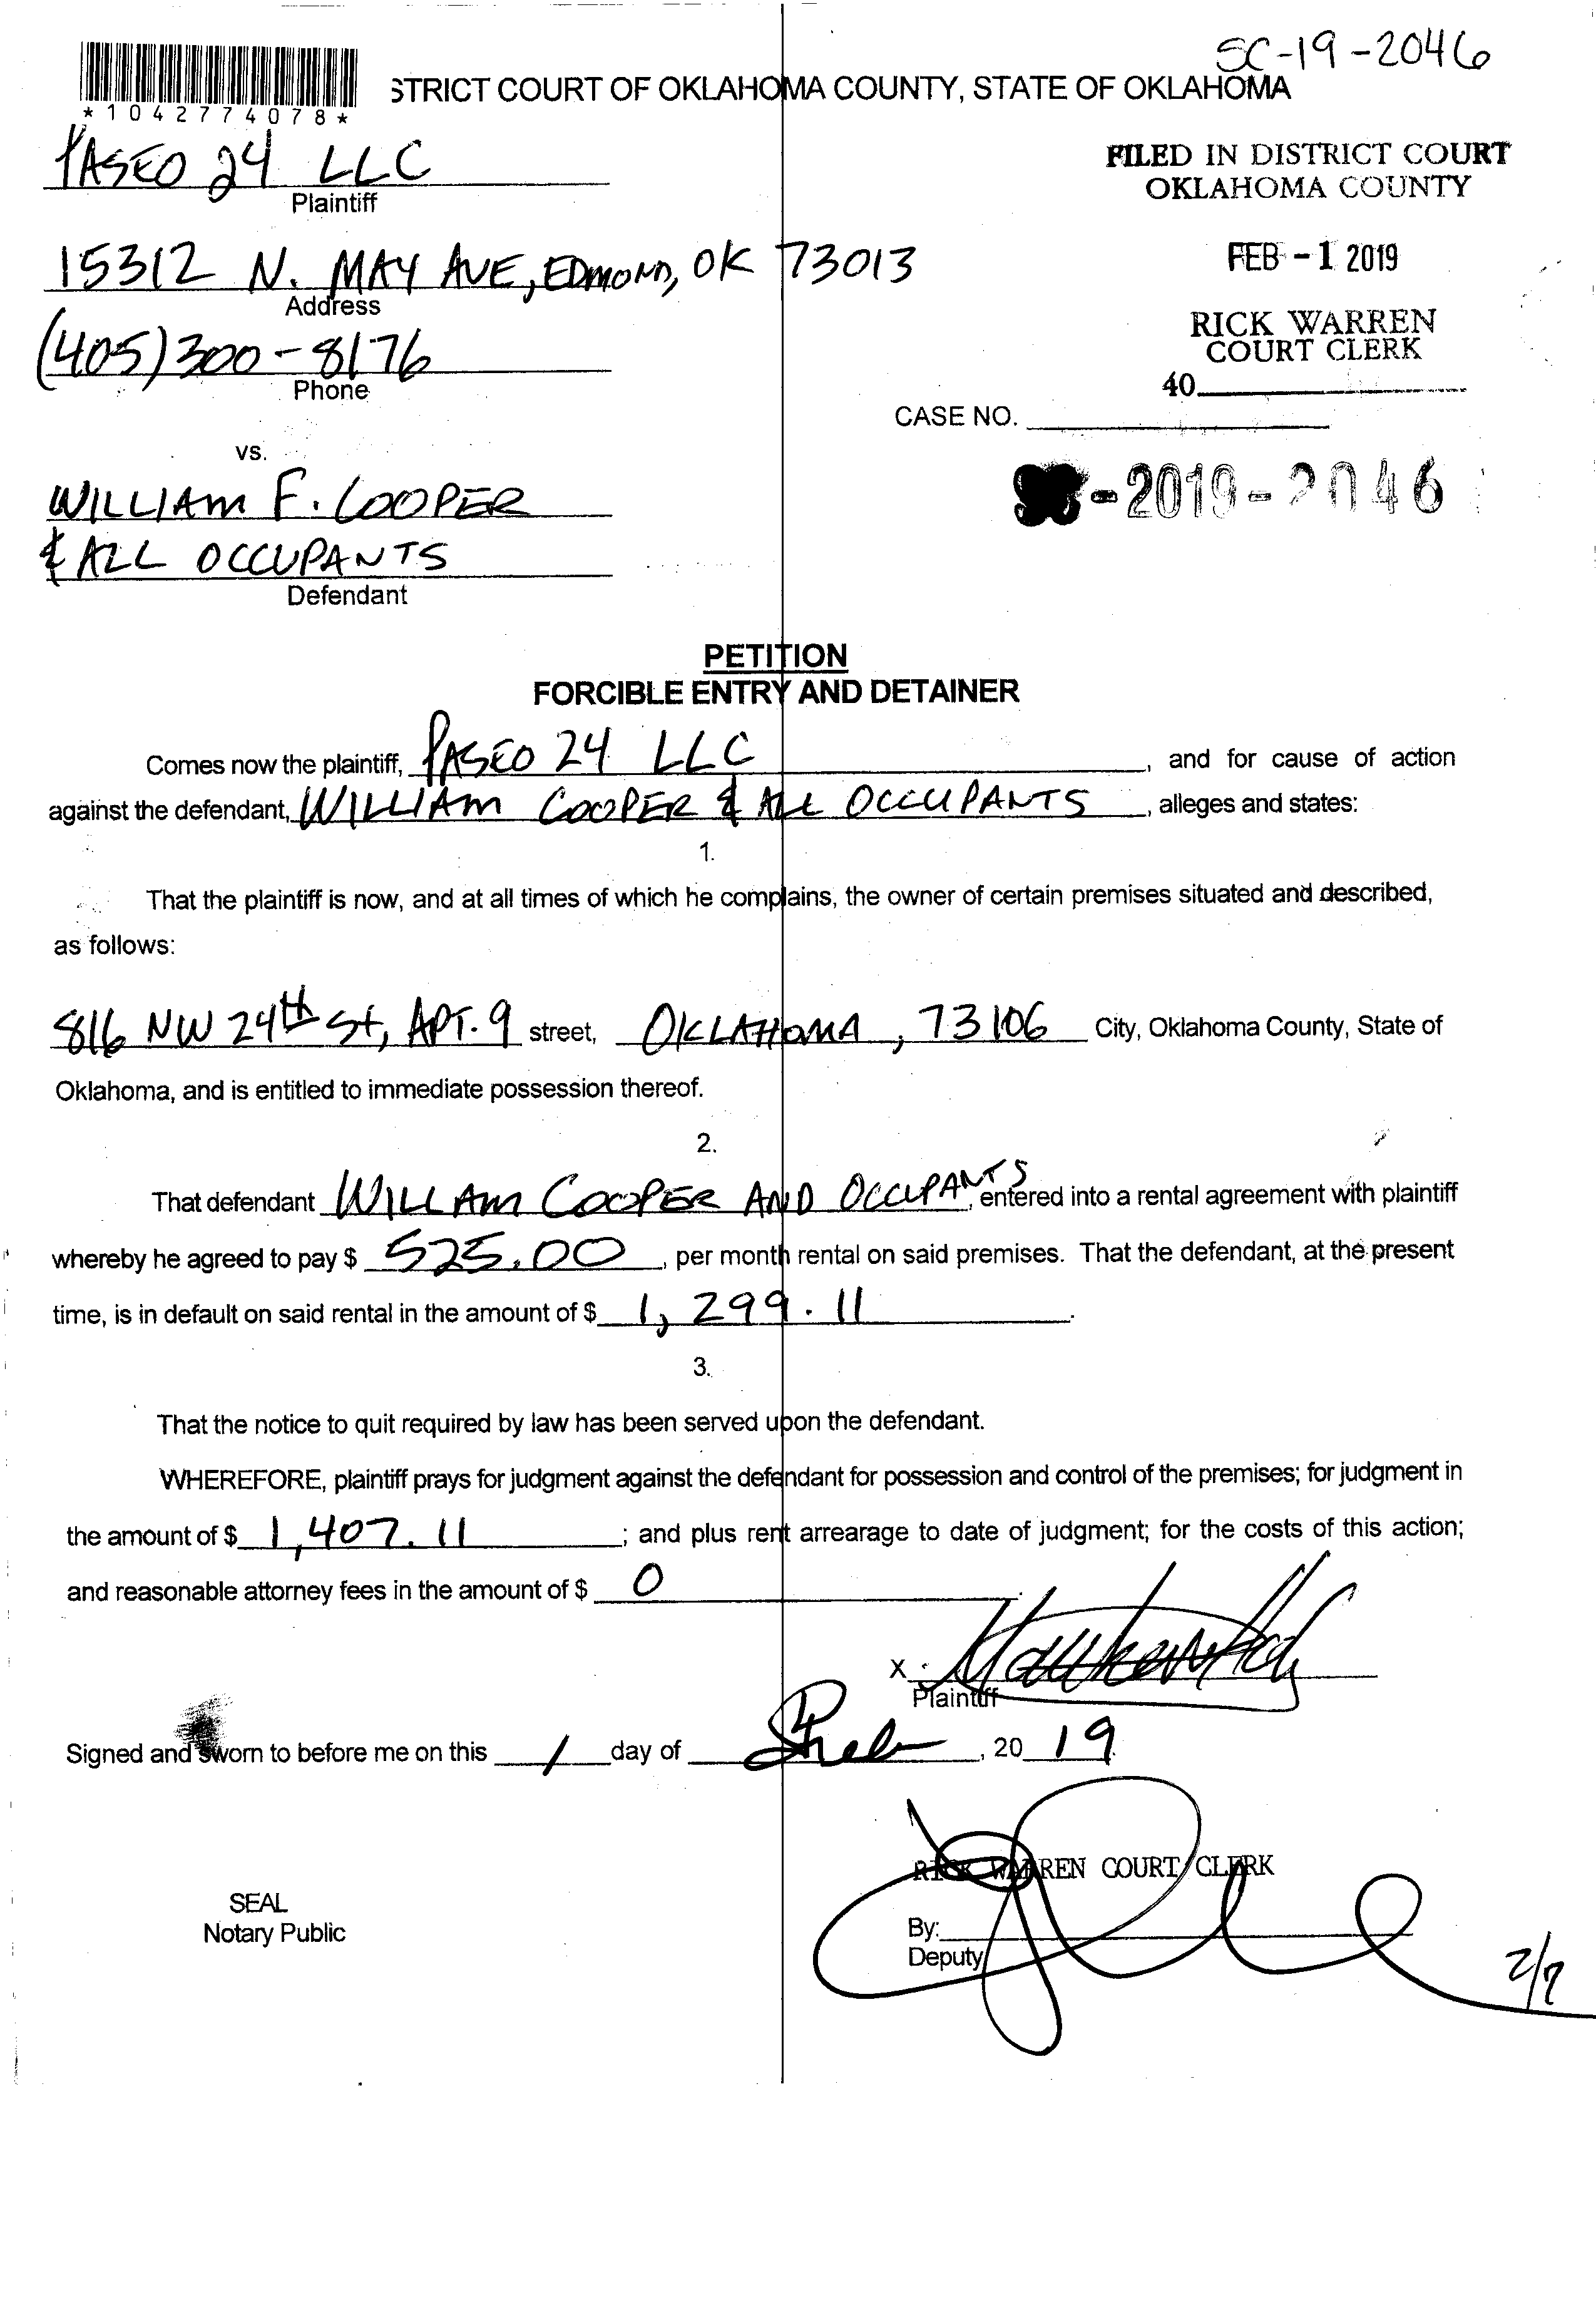 SC-19-2046
STRICT COURT OF OKLAHOMA COUNTY, STATE OF OKLAHOMA
*1042774078*
PASEO 24 LLC
Plaintiff
FILED IN DISTRICT COURT
OKLAHOMA COUNTY
15312 N. MAY AVE, EDMOND, OK 73013
Address
FEB -1 2019
(405)300-8176
Phone
RICK WARREN
COURT CLERK
40
CASE NO.
vs.
-2019-2046
WILLIAM F. COOPER
& ALL OCCUPANTS
Defendant
PETITION
FORCIBLE ENTRY AND DETAINER
Comes now the plaintiff, PASEO 24 LLC, and for cause of action
against the defendant, WILLIAM COOPER & ALL OCCUPANTS, alleges and states:
1.
That the plaintiff is now, and at all times of which he complains, the owner of certain premises situated and described,
as follows:
816 NW 24th St, APT. 9 street, OKLAHOMA, 73106 City, Oklahoma County, State of
Oklahoma, and is entitled to immediate possession thereof.
2.
That defendant WILLAM COOPER AND OCCUPANTS, entered into a rental agreement with plaintiff
whereby he agreed to pay $ 525.00, per month rental on said premises. That the defendant, at the present
time, is in default on said rental in the amount of $ 1,299.11.
3.
That the notice to quit required by law has been served upon the defendant.
WHEREFORE, plaintiff prays for judgment against the defendant for possession and control of the premises; for judgment in
the amount of $ 1,407.11; and plus rent arrearage to date of judgment; for the costs of this action;
and reasonable attorney fees in the amount of $ 0.
X
Plaintiff
Signed and sworn to before me on this 1 day of Feb, 20 19.
RICK WARREN COURT CLERK
SEAL
Notary Public
By:
Deputy
2/7